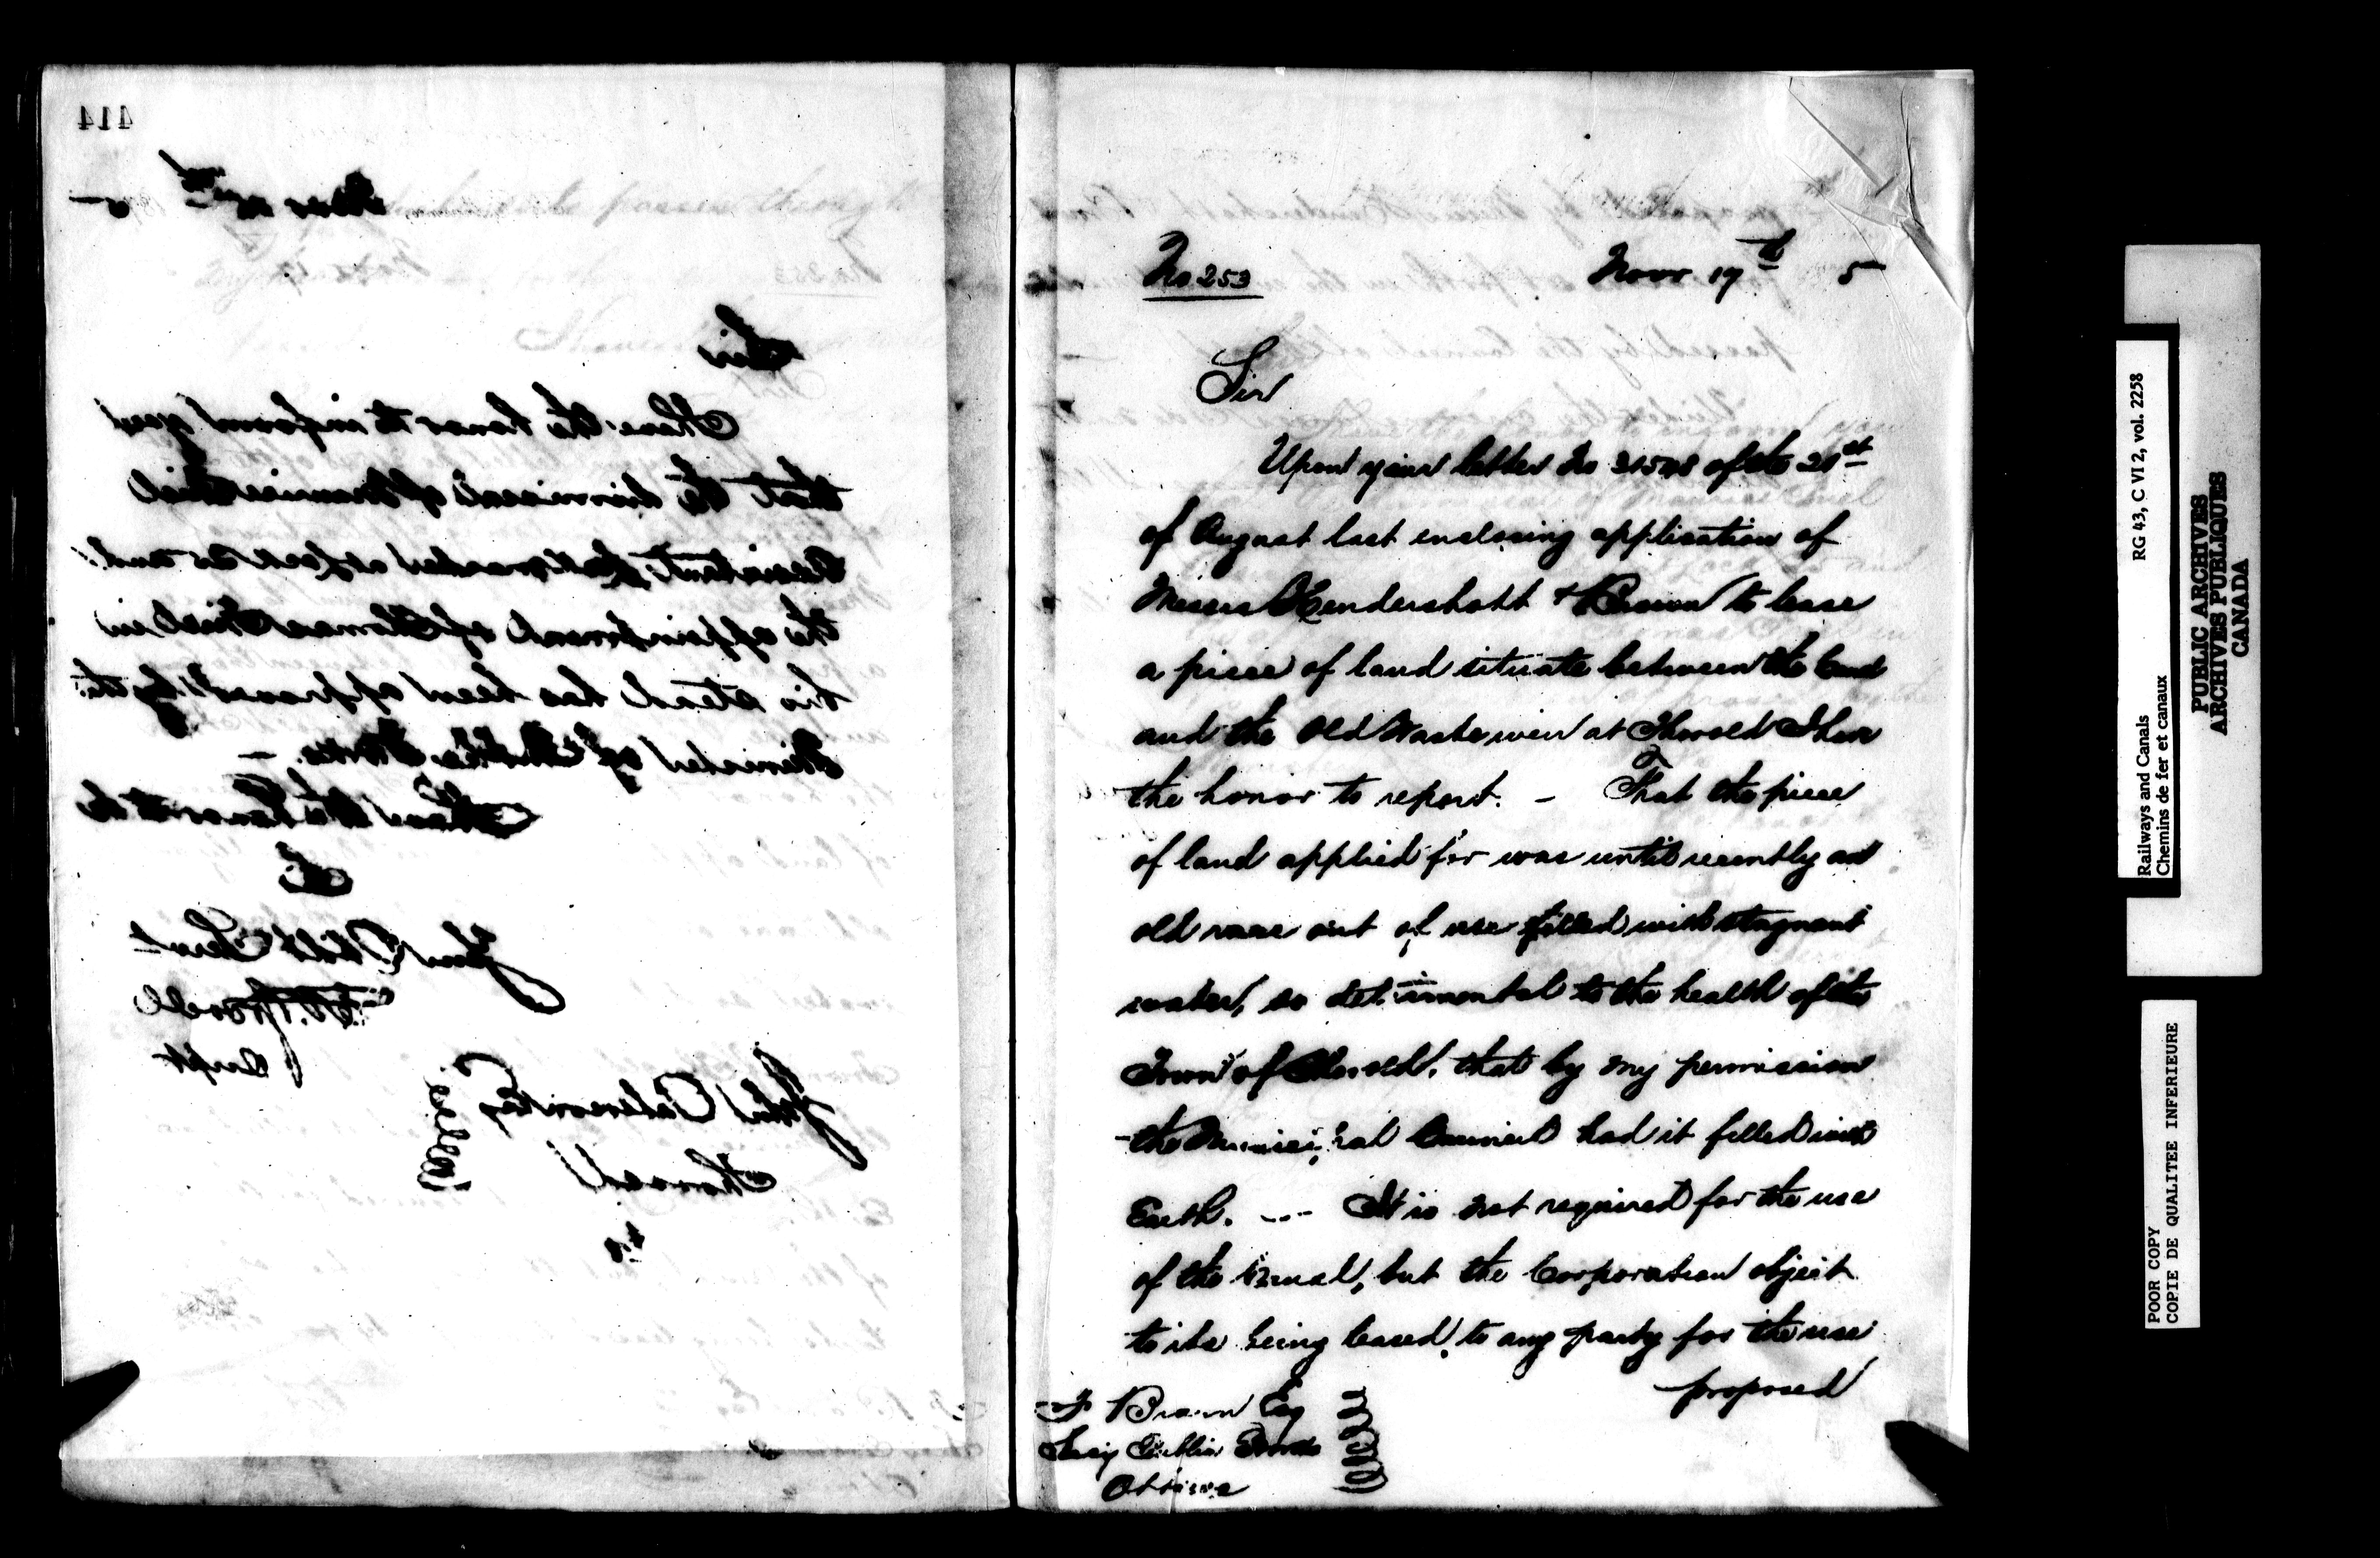 414
Sir
I have the honor to inform you
that the dismissal of
Assistant Lockmaster at Lock 25 and
the appointment of Thomas in
his stead has been approved by the
Minister of Public Works. —
I have the honor to be
Sir
Your Obdt Servt
Supt
John Esq
Thorold
No. 253 Novr 17th 5
Sir
Upon your letter No 31548 of the 21st
of August last enclosing application of
Messrs Hendershott & Brown to lease
a piece of land situate between the Canal
and the Old Waste weir at Thorold I have
the honor to report. — That the piece
of land applied for was until recently an
old race out of use filled with stagnant
water, so detrimental to the health of the
Town of Thorold, that by my permission
the Municipal Council had it filled with
Earth. --- It is not required for the use
of the Canal, but the Corporation object
to its being leased, to any party for the use
proposed
F Braun Esq
Secy Public Works
Ottawa
Railways and Canals RG 43, C VI 2, vol. 2258
Chemins de fer et canaux
PUBLIC ARCHIVES
ARCHIVES PUBLIQUES
CANADA
POOR COPY
COPIE DE QUALITEE INFERIEURE